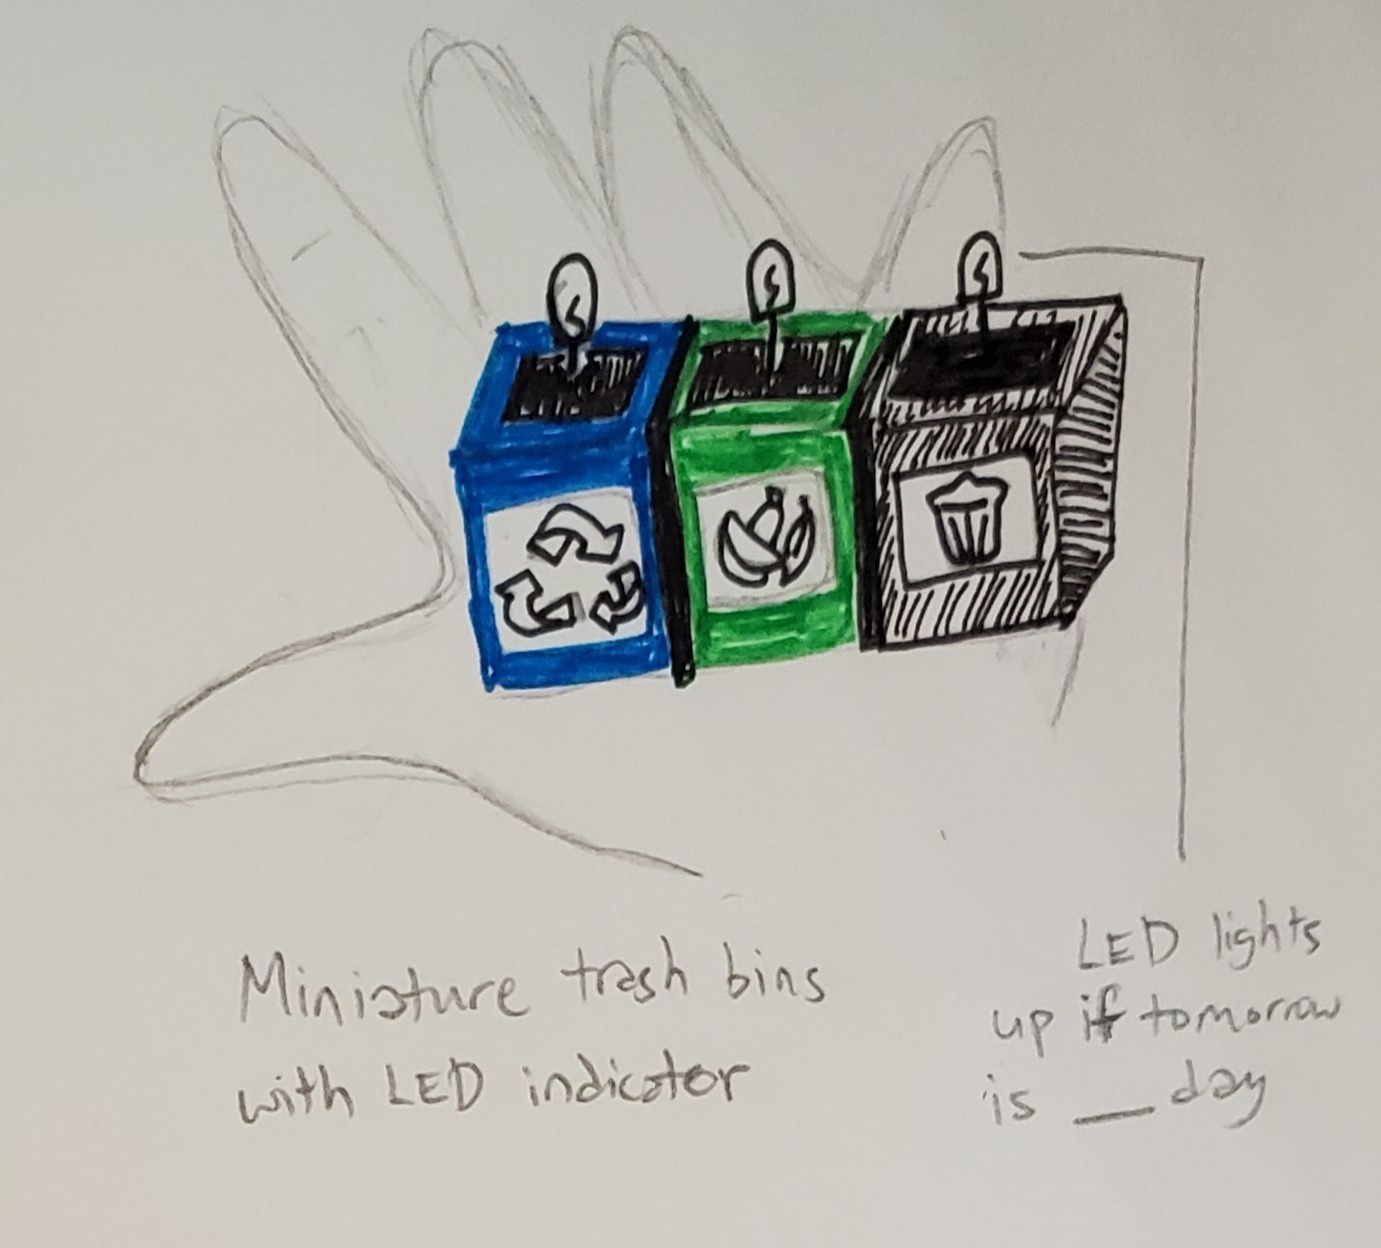 Miniature trash bins
with LED indicator
LED lights
up if tomorrow
is __ day